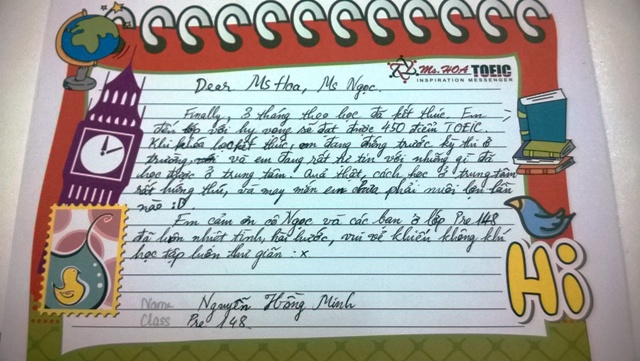 Ms. HOA TOEIC
INSPIRATION MESSENGER
Dear Ms Hoa, Ms Ngọc.
Finally, 3 tháng theo học đã kết thúc. Em
đến lớp với hy vọng sẽ đạt được 450 điểm TOEIC.
Khi khóa học kết thúc, em đang đứng trước kỳ thi ở
trường, và em đang rất tự tin với những gì đã
học được ở trung tâm! Quả thật, cách học ở trung tâm
rất hứng thú, và may mắn em chưa phải nuôi lợn lần
nào :D
Em cảm ơn cô Ngọc và các bạn ở lớp Pre 148
đã luôn nhiệt tình, hài hước, vui vẻ khiến không khí
học tập luôn thư giãn :x
Name Nguyễn Hồng Minh
Class Pre 148
Hi